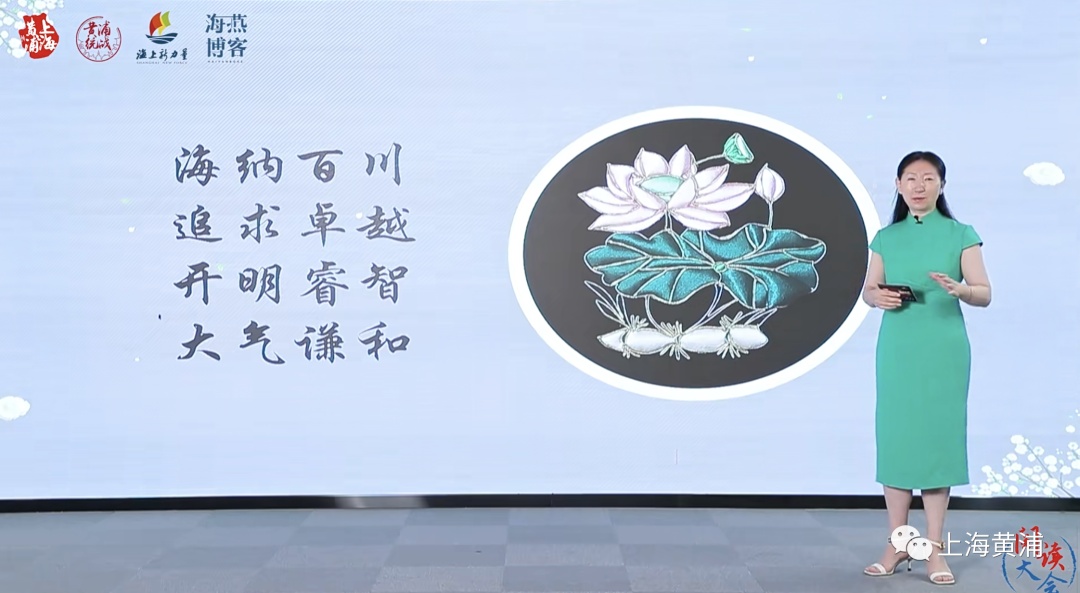 上海
黄浦
黄浦
统战
海上新力量
海燕
博客
海纳百川
追求卓越
开明睿智
大气谦和
上海黄浦
阅读
大会